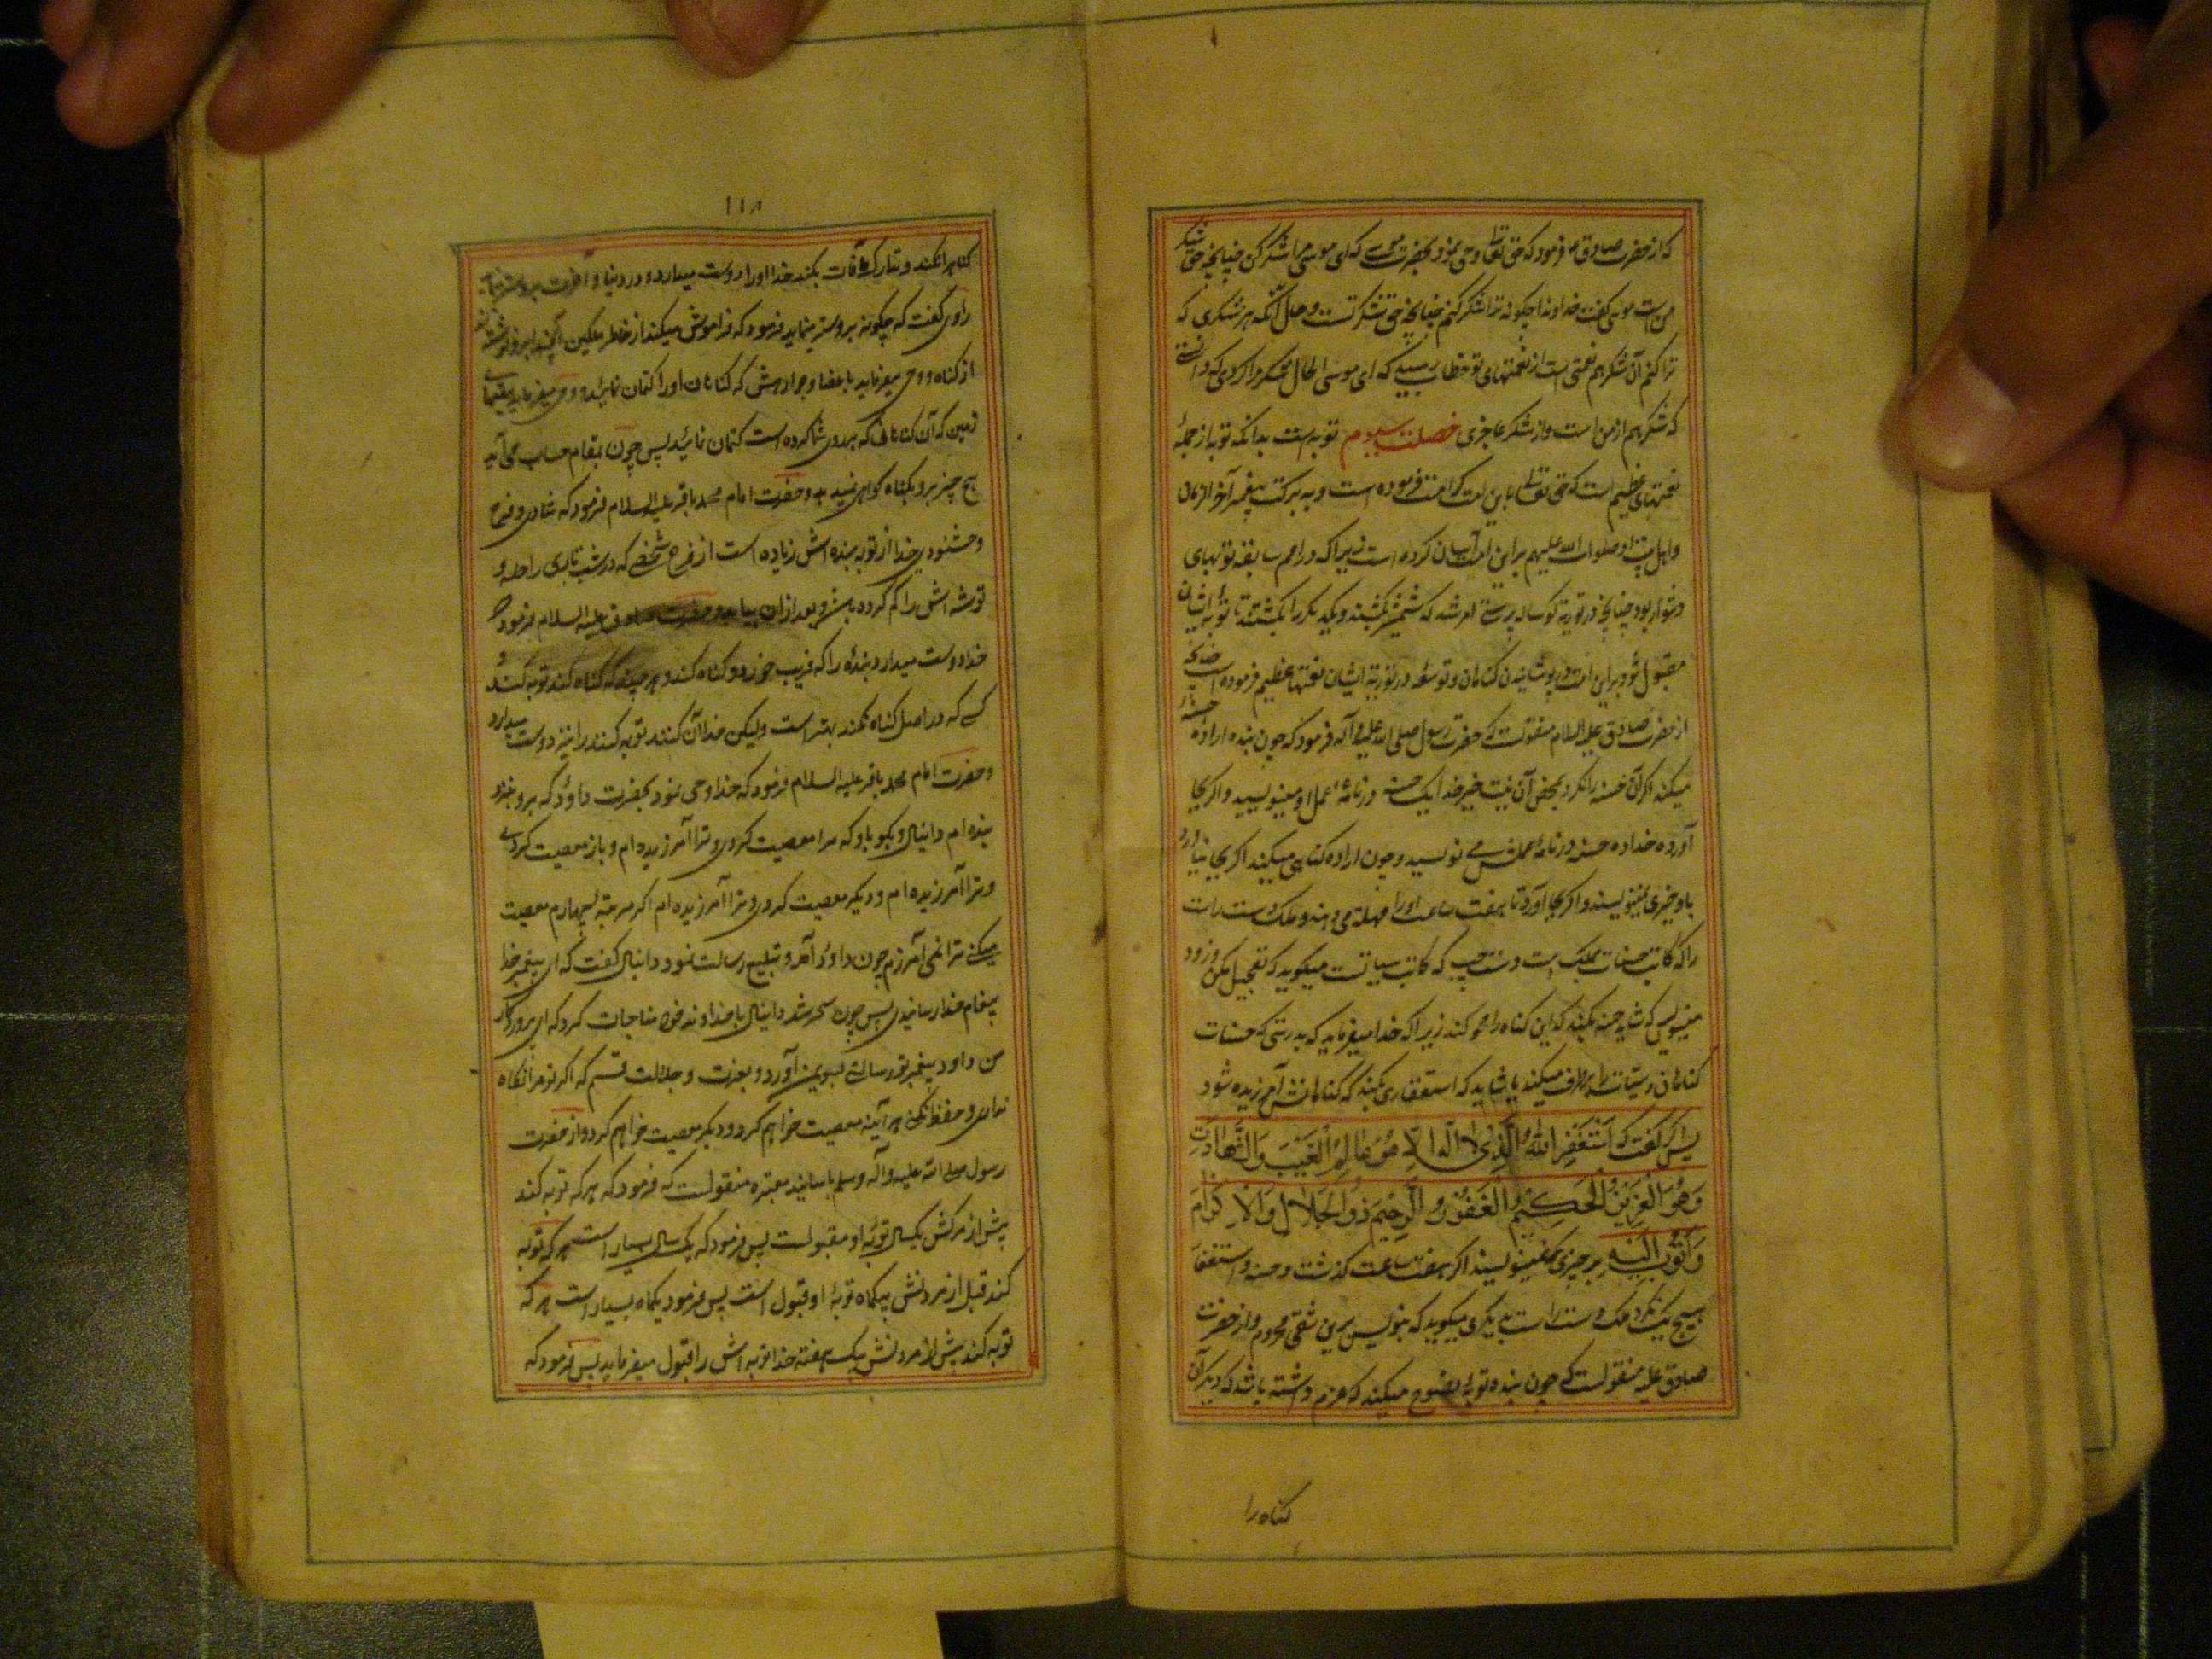 که از حضرت صادق ع فرمود که حق تعالی وحی نمود بحضرت موسی که ای موسی مرا شکر کن چنانچه حق شکر
من است موسی گفت خداوندا چگونه ترا شکر کنم چنانچه حق شکر تست و حال آنکه هر شکری که
ترا کنم آن شکر هم نعمتی است از نعمتهای تو خطاب رسید که ای موسی الحال شکر مرا کردی که دانستی
که شکر هم از من است و از شکر عاجزی خصلت سیوم توبه است بدانکه توبه از جملهٔ
نعمتهای عظیم است که حق تعالی باین امت کرامت فرموده است و به برکت پیغمبر آخر الزمان
و اهل بیت او صلوات الله علیهم برای این امت آسان کرده است زیرا که در امم سابقه توبهای
دشوار بود چنانچه در توبهٔ گوساله پرستی امر شد که شمشیر بکشند و یکدیگر را بکشند تا توبهٔ ایشان
مقبول شود و برای این امت در پوشانیدن گناهان و توسعه در توبهٔ ایشان نعمتهای عظیم فرموده است چنانچه
از حضرت صادق علیه السلام منقولست که حضرت رسول صلی الله علیه و آله فرمود که چون بنده ارادهٔ حسنه
میکند اگر آن حسنه را نکرد بمحض آن نیت خیر خدا یک حسنه در نامهٔ عمل او مینویسد و اگر بجا
آورد خدا ده حسنه در نامهٔ عملش می نویسد و چون ارادهٔ گناهی میکند اگر بجا نیاورد
باو چیزی نمینویسند و اگر بجا آورد تا هفت ساعت او را مهلت می دهند و ملک دست راست
را که کاتب حسنات بملک دست چپ که کاتب سیئاتست میگوید که تعجیل مکن و زود
منویس که شاید حسنه بکند که این گناه را محو کند زیرا که خدا میفرماید که بدرستی که حسنات
گناهان و سیئات را برطرف میکند یا شاید که استغفاری بکند که گناهانش آمرزیده شود
پس اگر گفت که استغفر الله الذی لا اله الا هو عالم الغیب والشهادت
وهو العزیز الحکیم الغفور الرحیم ذو الجلال والاکرام
واتوب الیه بر چیزی نمینویسند اگر هفت ساعت گذشت و حسنه و استغفا
هیچ یک نکرد ملک دست راست بدیگری میگوید که بنویس برین شقی محروم و از حضرت
صادق علیه منقولست که چون بنده توبهٔ نصوح میکند که عزم داشته باشد که دیگر آن
گناه را
۱۱۸
گناه را نکند و تدارک مافات بکند خدا او را دوست میدارد و در دنیا و آخرت برو ستر نماید
راوی گفت که چگونه برو ستر مینماید فرمود که فراموش میکند از خاطر ملکین آنچه برو نوشته‌اند
از گناه و وحی میفرماید باعضا و جوارحش که گناهان او را کتمان نمایند و وحی میفرماید ببقعهای
زمین که آن گناهانی که بر روی شما کرده است کتمان نمائید پس چون بمقام حساب می آید
هیچ چیز برو بگناه گواهی نمیدهد و حضرت امام محمد باقر علیه السلام فرمود که شادی و فرح
و خشنودی خدا از توبه بنده اش زیاده است از فرح شخصی که در شب تاری راحله و
توشه اش را گم کرده باشد و بعد از آن بیابد و حضرت صادق علیه السلام فرمود که
خدا دوست میدارد بندهٔ را که فریب خورد و گناه کند و هرچند که گناه کند توبه کند و
کسی که در اصل گناه نکند بهتر است ولیکن خدا آن گنند توبه کننده را نیز دوست میدارد
و حضرت امام محمد باقر علیه السلام فرمود که خدا وحی نمود بحضرت داوُد که برو بنزد
بنده ام دانیال و بگو باو که مرا معصیت کردی و ترا آمرزیده ام و باز معصیت کردی
و ترا آمرزیده ام و دیگر معصیت کردی و ترا آمرزیده ام اگر مرتبهٔ چهارم معصیت
میکنی ترا نمی آمرزم چون داوُد آمد و تبلیغ رسالت نمود دانیال گفت که ای پیغمبر خدا
پیغام خدا رسانیدی پس چون سحر شد دانیال با خداوند خود مناجات کرد که ای پروردگار
من داود پیغمبر تو رسالت بسوی من آورد و بعزت و جلالت قسم که اگر تو مرا نگاه
نداری و حفظ نکنی هر آینه معصیت خواهم کرد و دیگر معصیت خواهم کرد و از حضرت
رسول صلی الله علیه وآله وسلم باسانید معتبره منقولست که فرمود که هرکه توبه کند
پیش از مرگش بیکسال توبهٔ او مقبولست پس فرمود که یکسال بسیار است هرکه توبه
کند قبل از مردنش بیکماه توبهٔ او قبول است پس فرمود یکماه بسیار است هر که
توبه کند پیش از مردنش بیک هفته خدا توبه اش را قبول میفرماید پس فرمود که